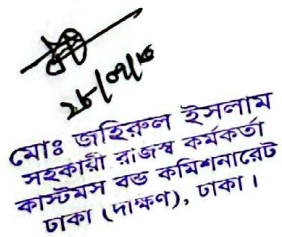 ২৮/০৭/২৫
মোঃ জহিরুল ইসলাম
সহকারী রাজস্ব কর্মকর্তা
কাস্টমস বন্ড কমিশনারেট
ঢাকা (দক্ষিণ), ঢাকা।